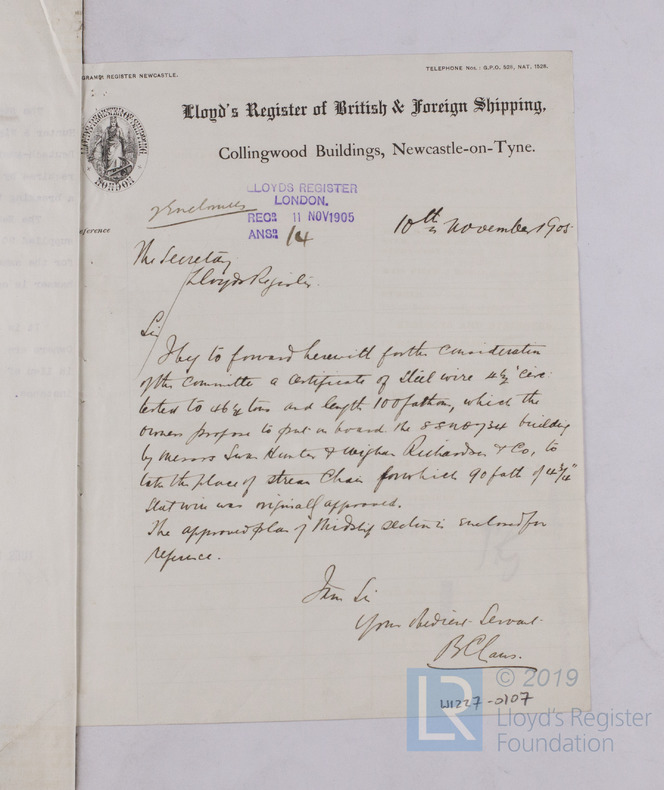 GRAMS REGISTER NEWCASTLE.
TELEPHONE Nos.: G.P.O. 526, NAT. 1526.
Lloyd's Register of British & Foreign Shipping,
Collingwood Buildings, Newcastle-on-Tyne.
LONDON
LLOYDS REGISTER
LONDON.
RECD 11 NOV 1905
ANSD 14
2 Enclosures
10th November 1905
eference
The Secretary
Lloyds Register.
Sir
I beg to forward herewith for the consideration
of the Committee a certificate of Steel wire 4½" circ:
tested to 46½ tons and length 100 fathom, which the
owners propose to put on board the SS No 734 building
by Messrs Swan Hunter & Wigham Richardson & Co, to
take the place of stream Chain for which 90 fath of 4¾"
Steel wire was originally approved.
The approved plan of Midship section is enclosed for
reference.
I am Sir
Your obedient Servant
W1227-0107
LR
© 2019
Lloyd's Register
Foundation